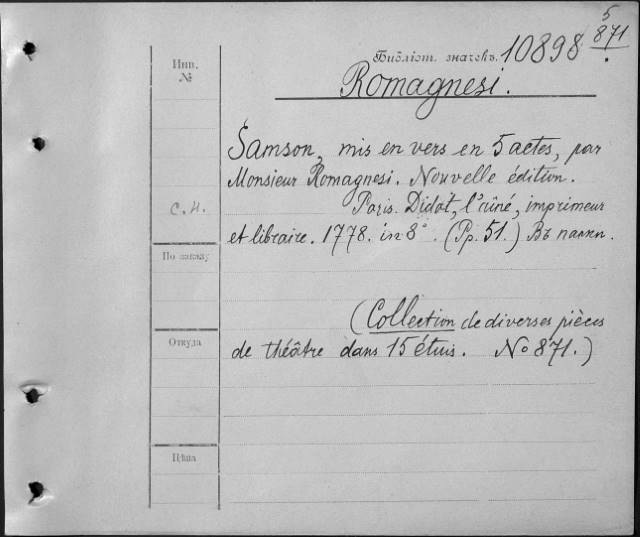 5
871
Библіот. значекъ. 10898
Инв.
№
Romagnesi.
Samson, mis en vers en 5 actes, par
Monsieur Romagnesi. Nouvelle édition.
с.н.
Paris. Didot, l'aîné, imprimeur
et libraire. 1778. in-8°. (Pp. 51.) Въ папки.
По заказу
(Collection de diverses pièces
Откуда
de théâtre dans 15 étuis. No 871.)
Цѣна